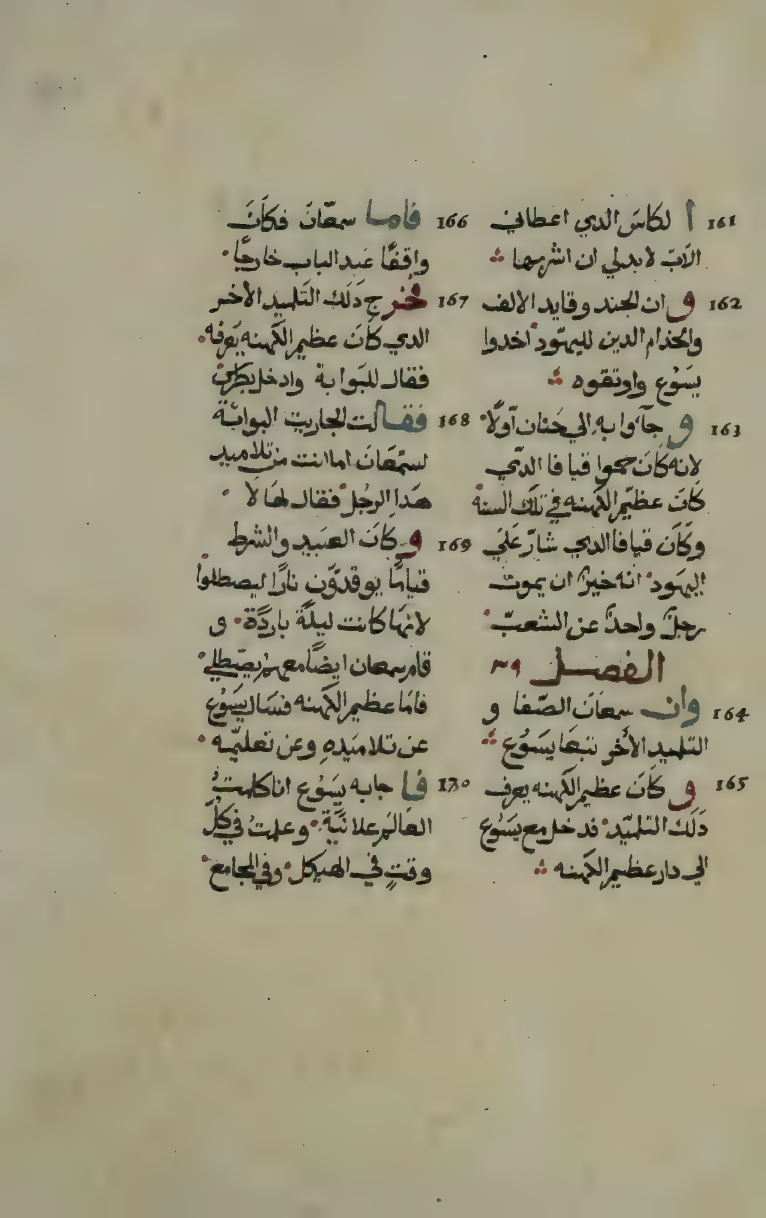 161 الكاس الدي اعطاني
الاب لا بد لي ان اشربها
162 وان الجند وقايد الالف
والخدام الدين لليهود اخدوا
يسوع واوتقوه
163 وجآوا به الي حنان اولًا
لانه كان حموا قيافا الدي
كان عظيم الكهنه في تلك السنة
وكان قيافا الدي شار علي
اليهود انه خيرٌ ان يموت
رجلٌ واحدٌ عن الشعب
الفصل ٣٩
164 وان سمعان الصفا و
التلميد الأخر تبعا يسوع
165 وكان عظيم الكهنه يعرف
دلك التلميد فدخل مع يسوع
الي دار عظيم الكهنه
166 فاما سمعان فكان
واقفًا عند الباب خارجًا
167 فخرج دلك التلميد الأخر
الدي كان عظيم الكهنه يعرفه
فقال للبوابة وادخل بطرس
168 فقالت الجاريت البوابة
لسمعان اما انت من تلاميد
هدا الرجل فقال لها لا
169 وكان العبيد والشرط
قيامًا يوقدون نارًا ليصطلوا
لانها كانت ليلة باردة و
قام سمعان ايضًا معهم يصطلي
فاما عظيم الكهنه فسال يسوع
عن تلاميده وعن تعليمه
170 فاجابه يسوع انا كلمت
العالم علانية وعلمت في كل
وقتٍ في الهيكل وفي المجامع